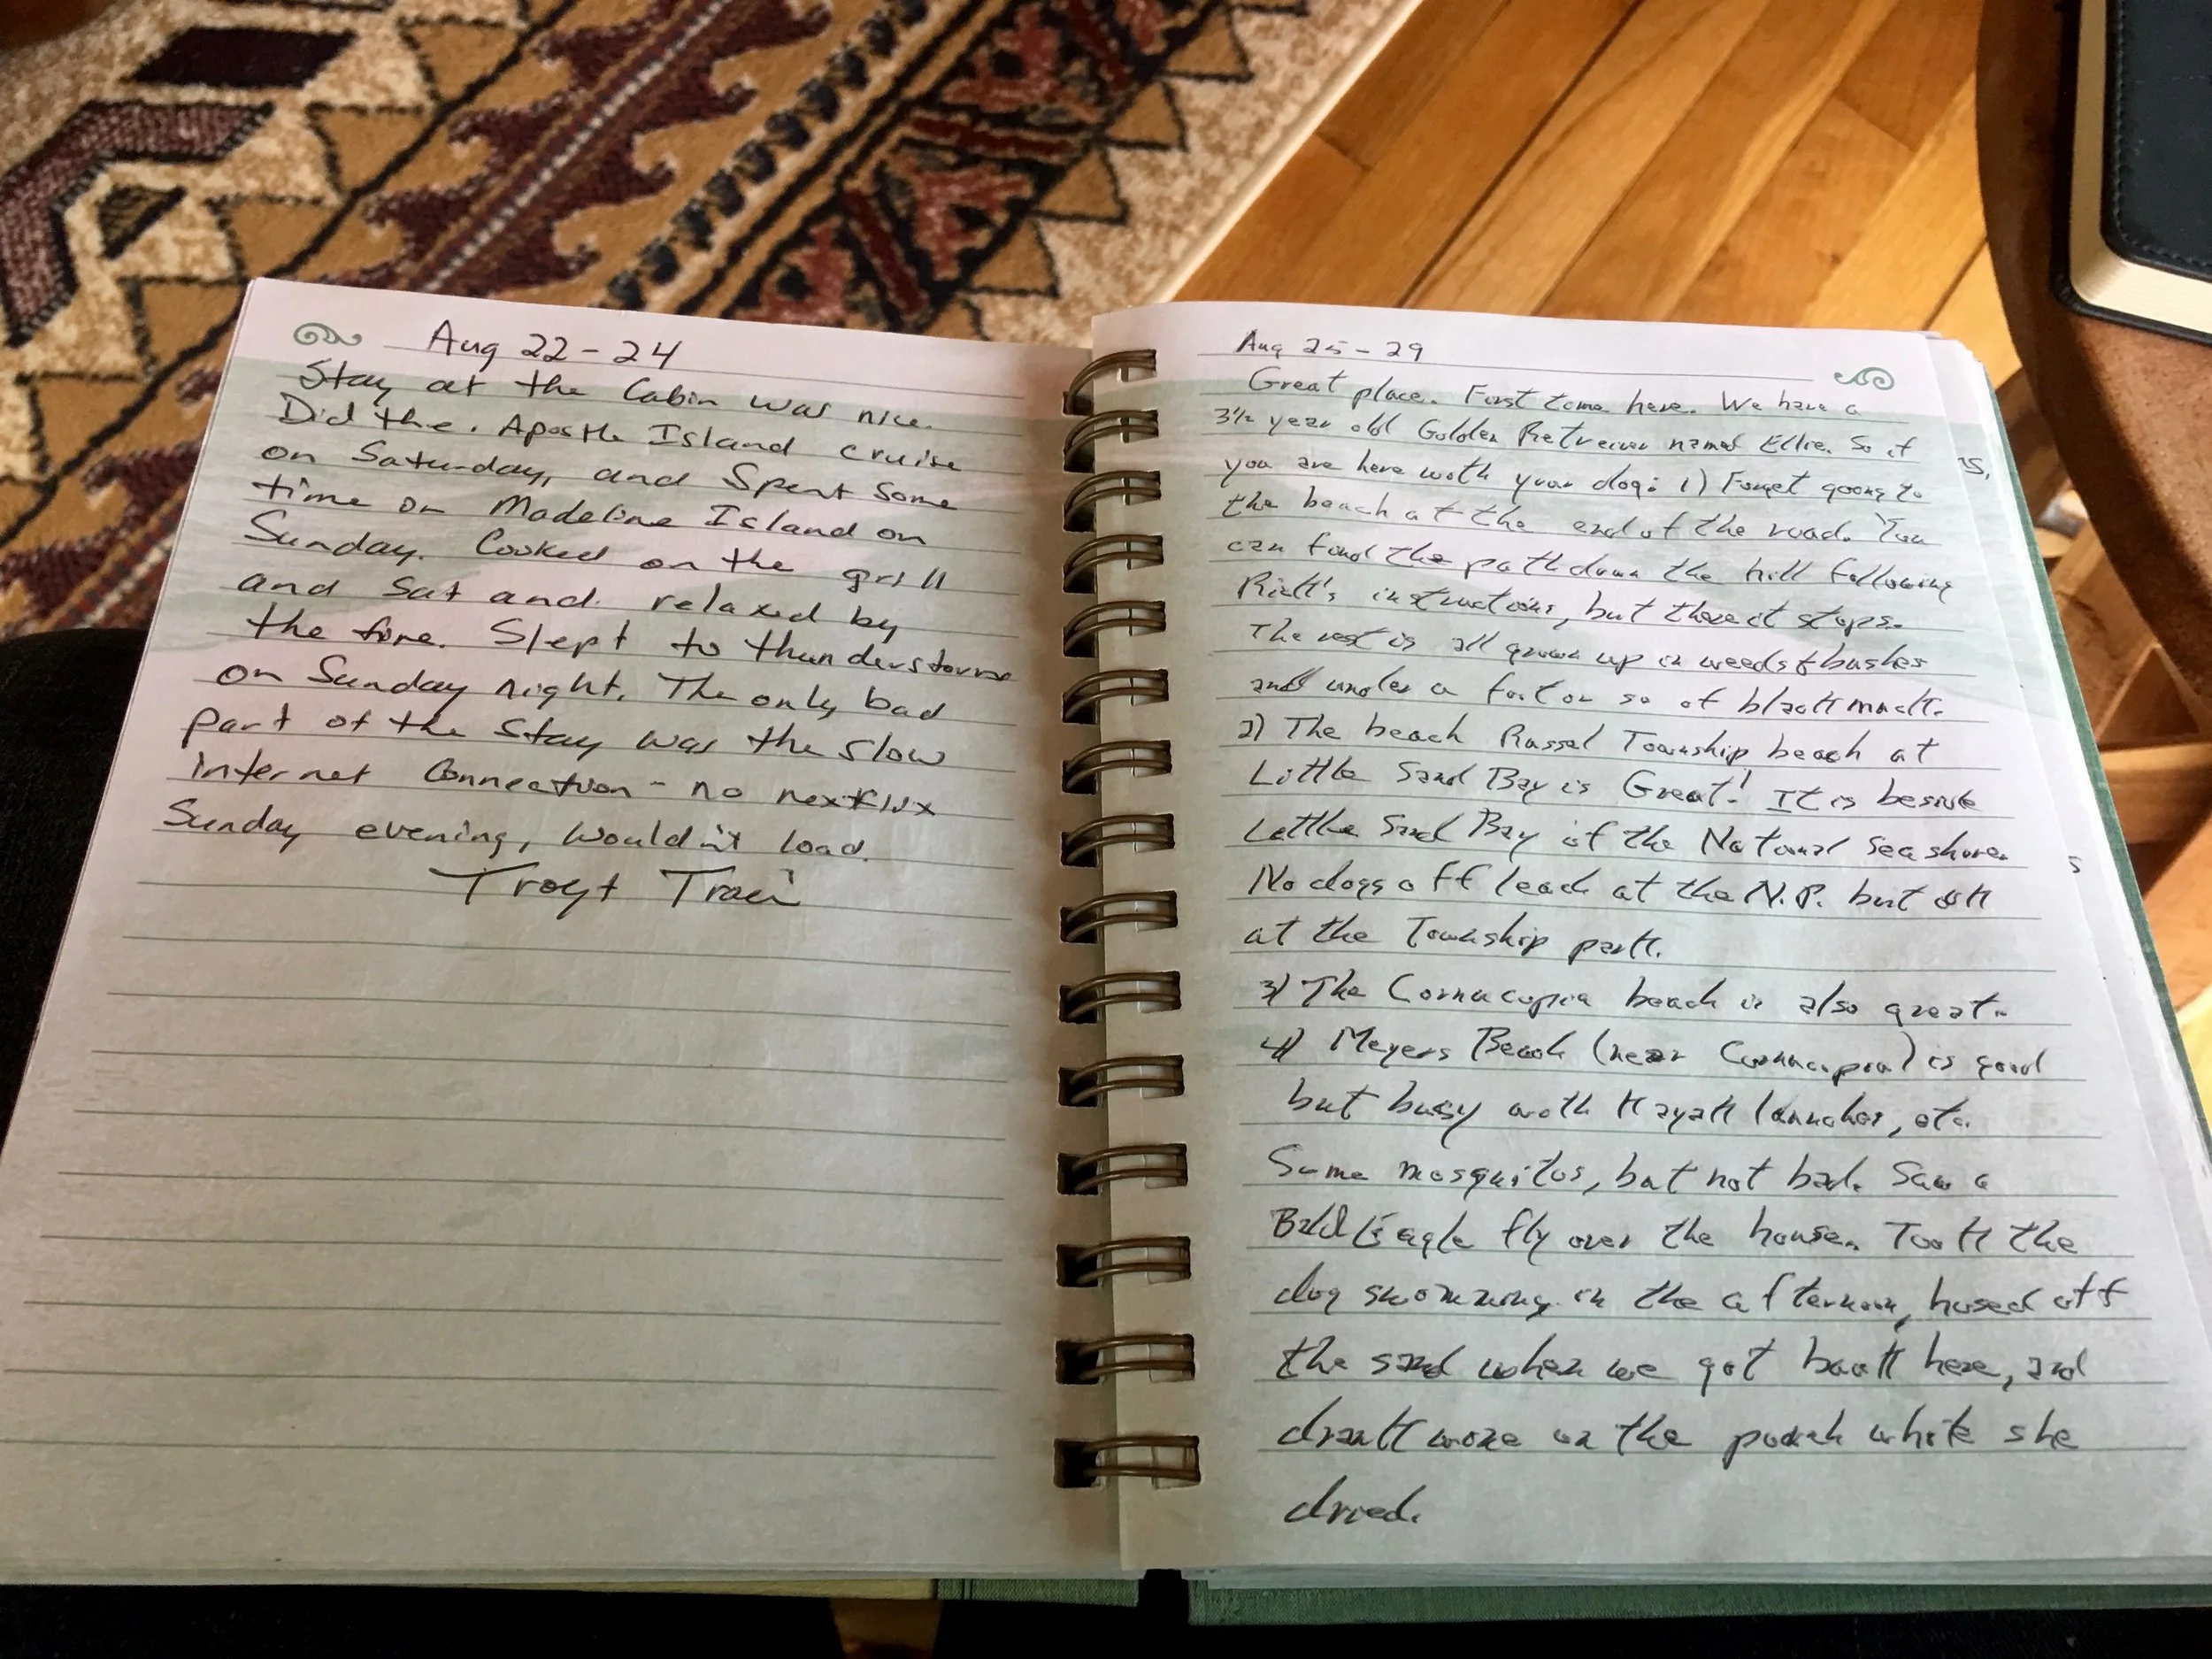 Aug 22-24
Stay at the Cabin was nice.
Did the. Apostle Island cruise
on Saturday, and Spent Some
time on Madeline Island on
Sunday. Cooked on the grill
and Sat and relaxed by
the fire. Slept to thunderstorms
on Sunday night. The only bad
part of the Stay was the slow
Internet Connection - no
Sunday evening, wouldn't load.
Troy + Traci
Aug 25-29
Great place. First time here. We have a
3½ year old Golden Retreiver named Ellie. So if
you are here with your dog: 1) Forget going to
the beach at the end of the road. You
can find the path down the hill following
Rick's instructions, but there it stops.
The rest is all grown up in weeds & bushes
and under a foot or so of black muck.
2) The beach Russel Township beach at
Little Sand Bay is Great! It is beside
Little Sand Bay of the National Seashore.
No dogs off leach at the N.P. but ok
at the Township park.
3) The Cornucopia beach is also great.
4) Meyers Beach (near Cornucopia) is good
but busy with kayak launches, etc.
Some mosquitos, but not bad. Saw a
Bald Eagle fly over the house. Took the
dog swimming in the afternoon, hosed off
the sand when we got back here, and
drank wine on the porch while she
dried.